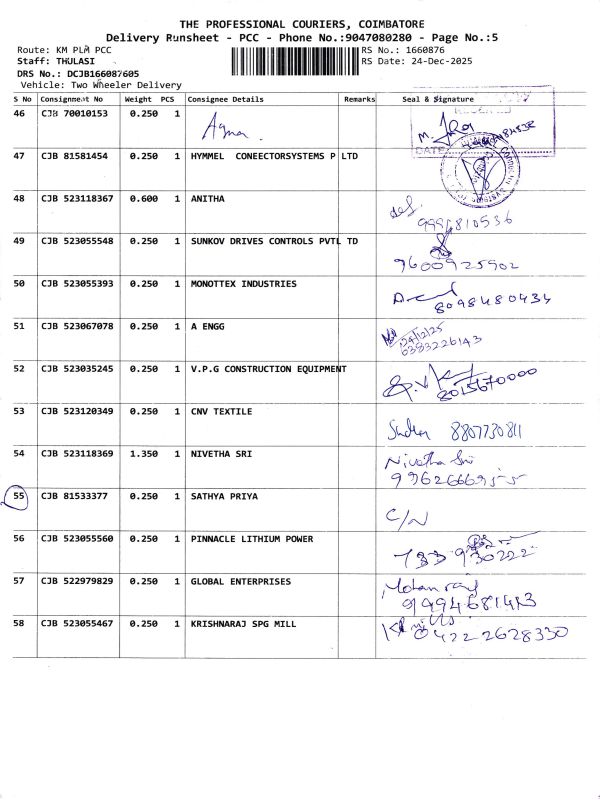 THE PROFESSIONAL COURIERS, COIMBATORE
Delivery Runsheet - PCC - Phone No.:9047080280 - Page No.:5
Route: KM PLM PCC
RS No.: 1660876
Staff: THULASI
RS Date: 24-Dec-2025
DRS No.: DCJB166087605
Vehicle: Two Wheeler Delivery
S No Consignment No Weight PCS Consignee Details Remarks Seal & Signature
46 CJB 70010153 0.250 1
DATE
47 CJB 81581454 0.250 1 HYMMEL CONEECTORSYSTEMS P LTD
48 CJB 523118367 0.600 1 ANITHA
9994810536
49 CJB 523055548 0.250 1 SUNKOV DRIVES CONTROLS PVTL TD
9600925902
50 CJB 523055393 0.250 1 MONOTTEX INDUSTRIES
8098480434
51 CJB 523067078 0.250 1 A ENGG
24/12/25
6383226143
52 CJB 523035245 0.250 1 V.P.G CONSTRUCTION EQUIPMENT
8015670000
53 CJB 523120349 0.250 1 CNV TEXTILE
8807730811
54 CJB 523118369 1.350 1 NIVETHA SRI
Nivetha Sri
55 CJB 81533377 0.250 1 SATHYA PRIYA
C/N
56 CJB 523055560 0.250 1 PINNACLE LITHIUM POWER
57 CJB 522979829 0.250 1 GLOBAL ENTERPRISES
Mohanraj
58 CJB 523055467 0.250 1 KRISHNARAJ SPG MILL
0422 2628330